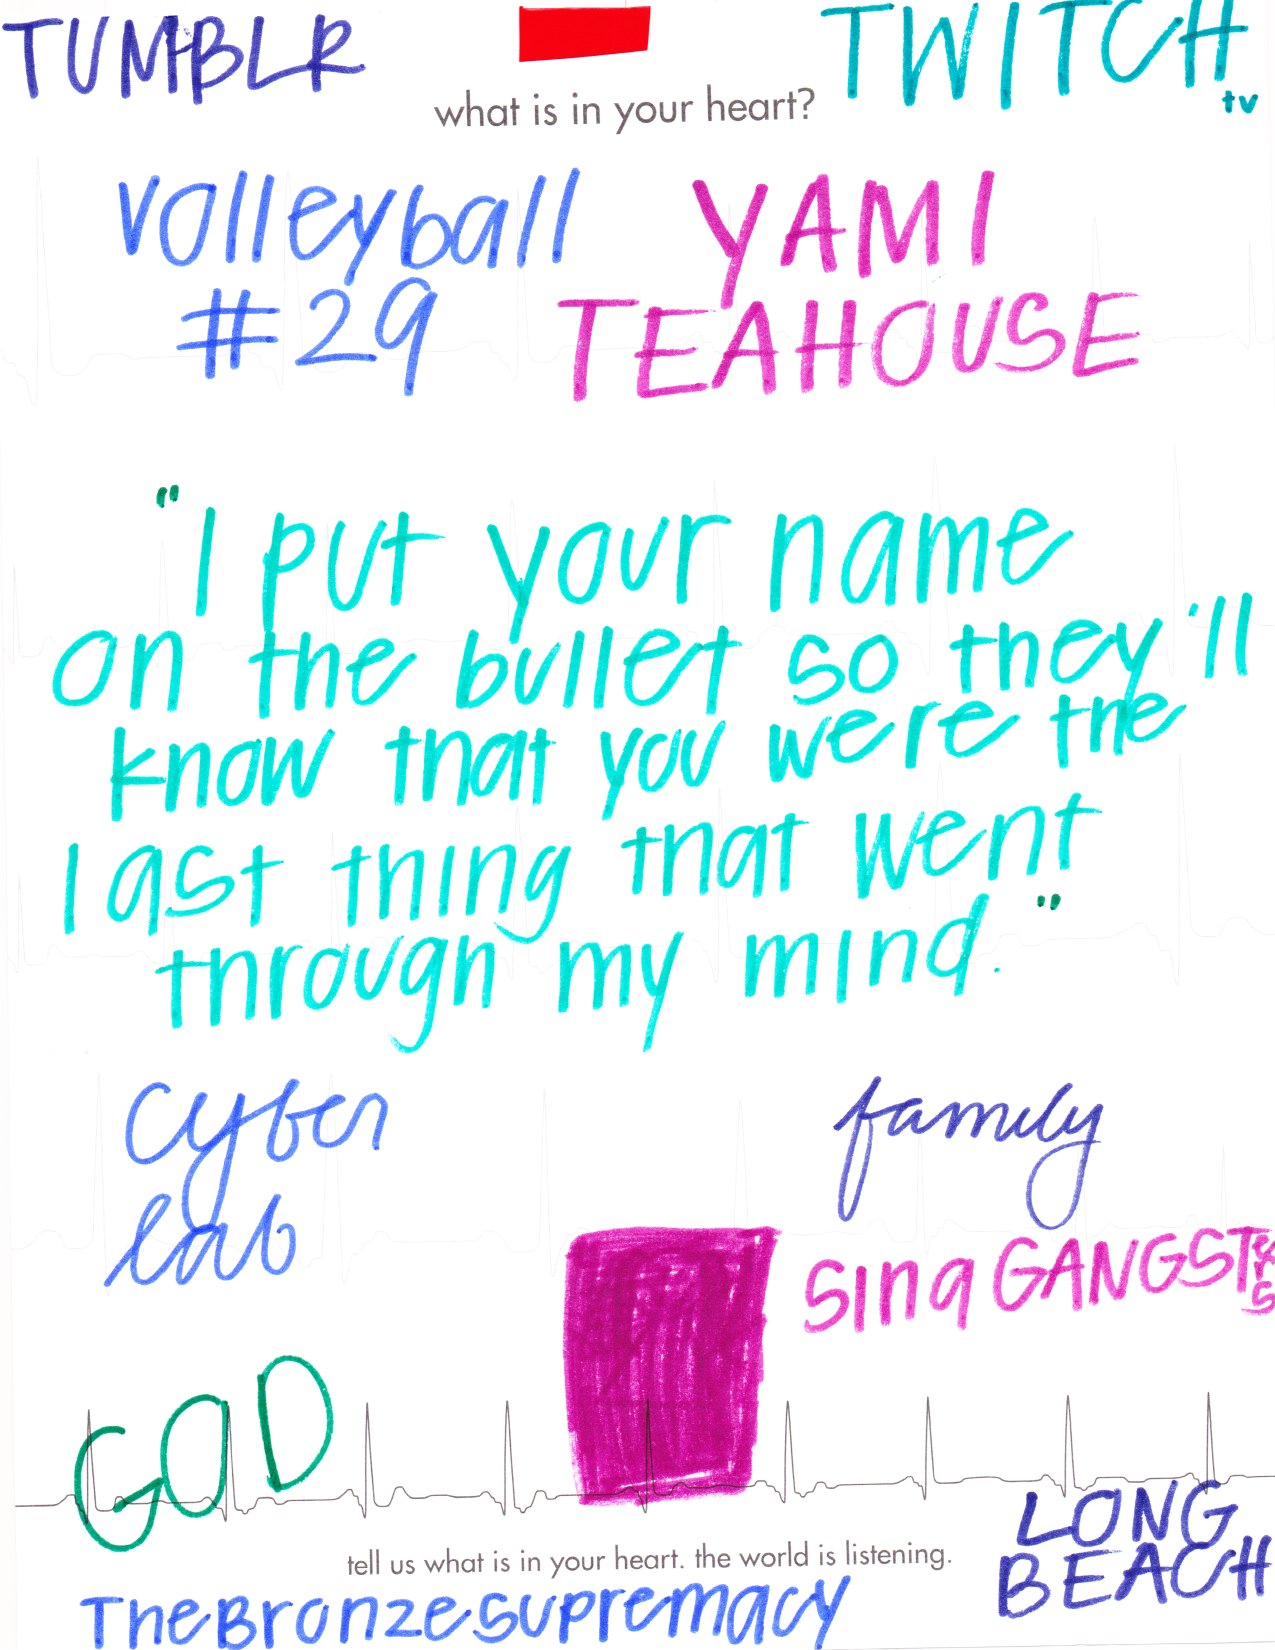 TUMBLR
TWITCH
tv
what is in your heart?
volleyball
#29
YAMI
TEAHOUSE
"I put your name
on the bullet so they'll
know that you were the
last thing that went
through my mind."
cyber
lab
family
sinqGANGSTERS
GOD
LONG
BEACH
tell us what is in your heart. the world is listening.
TheBronzeSupremacy